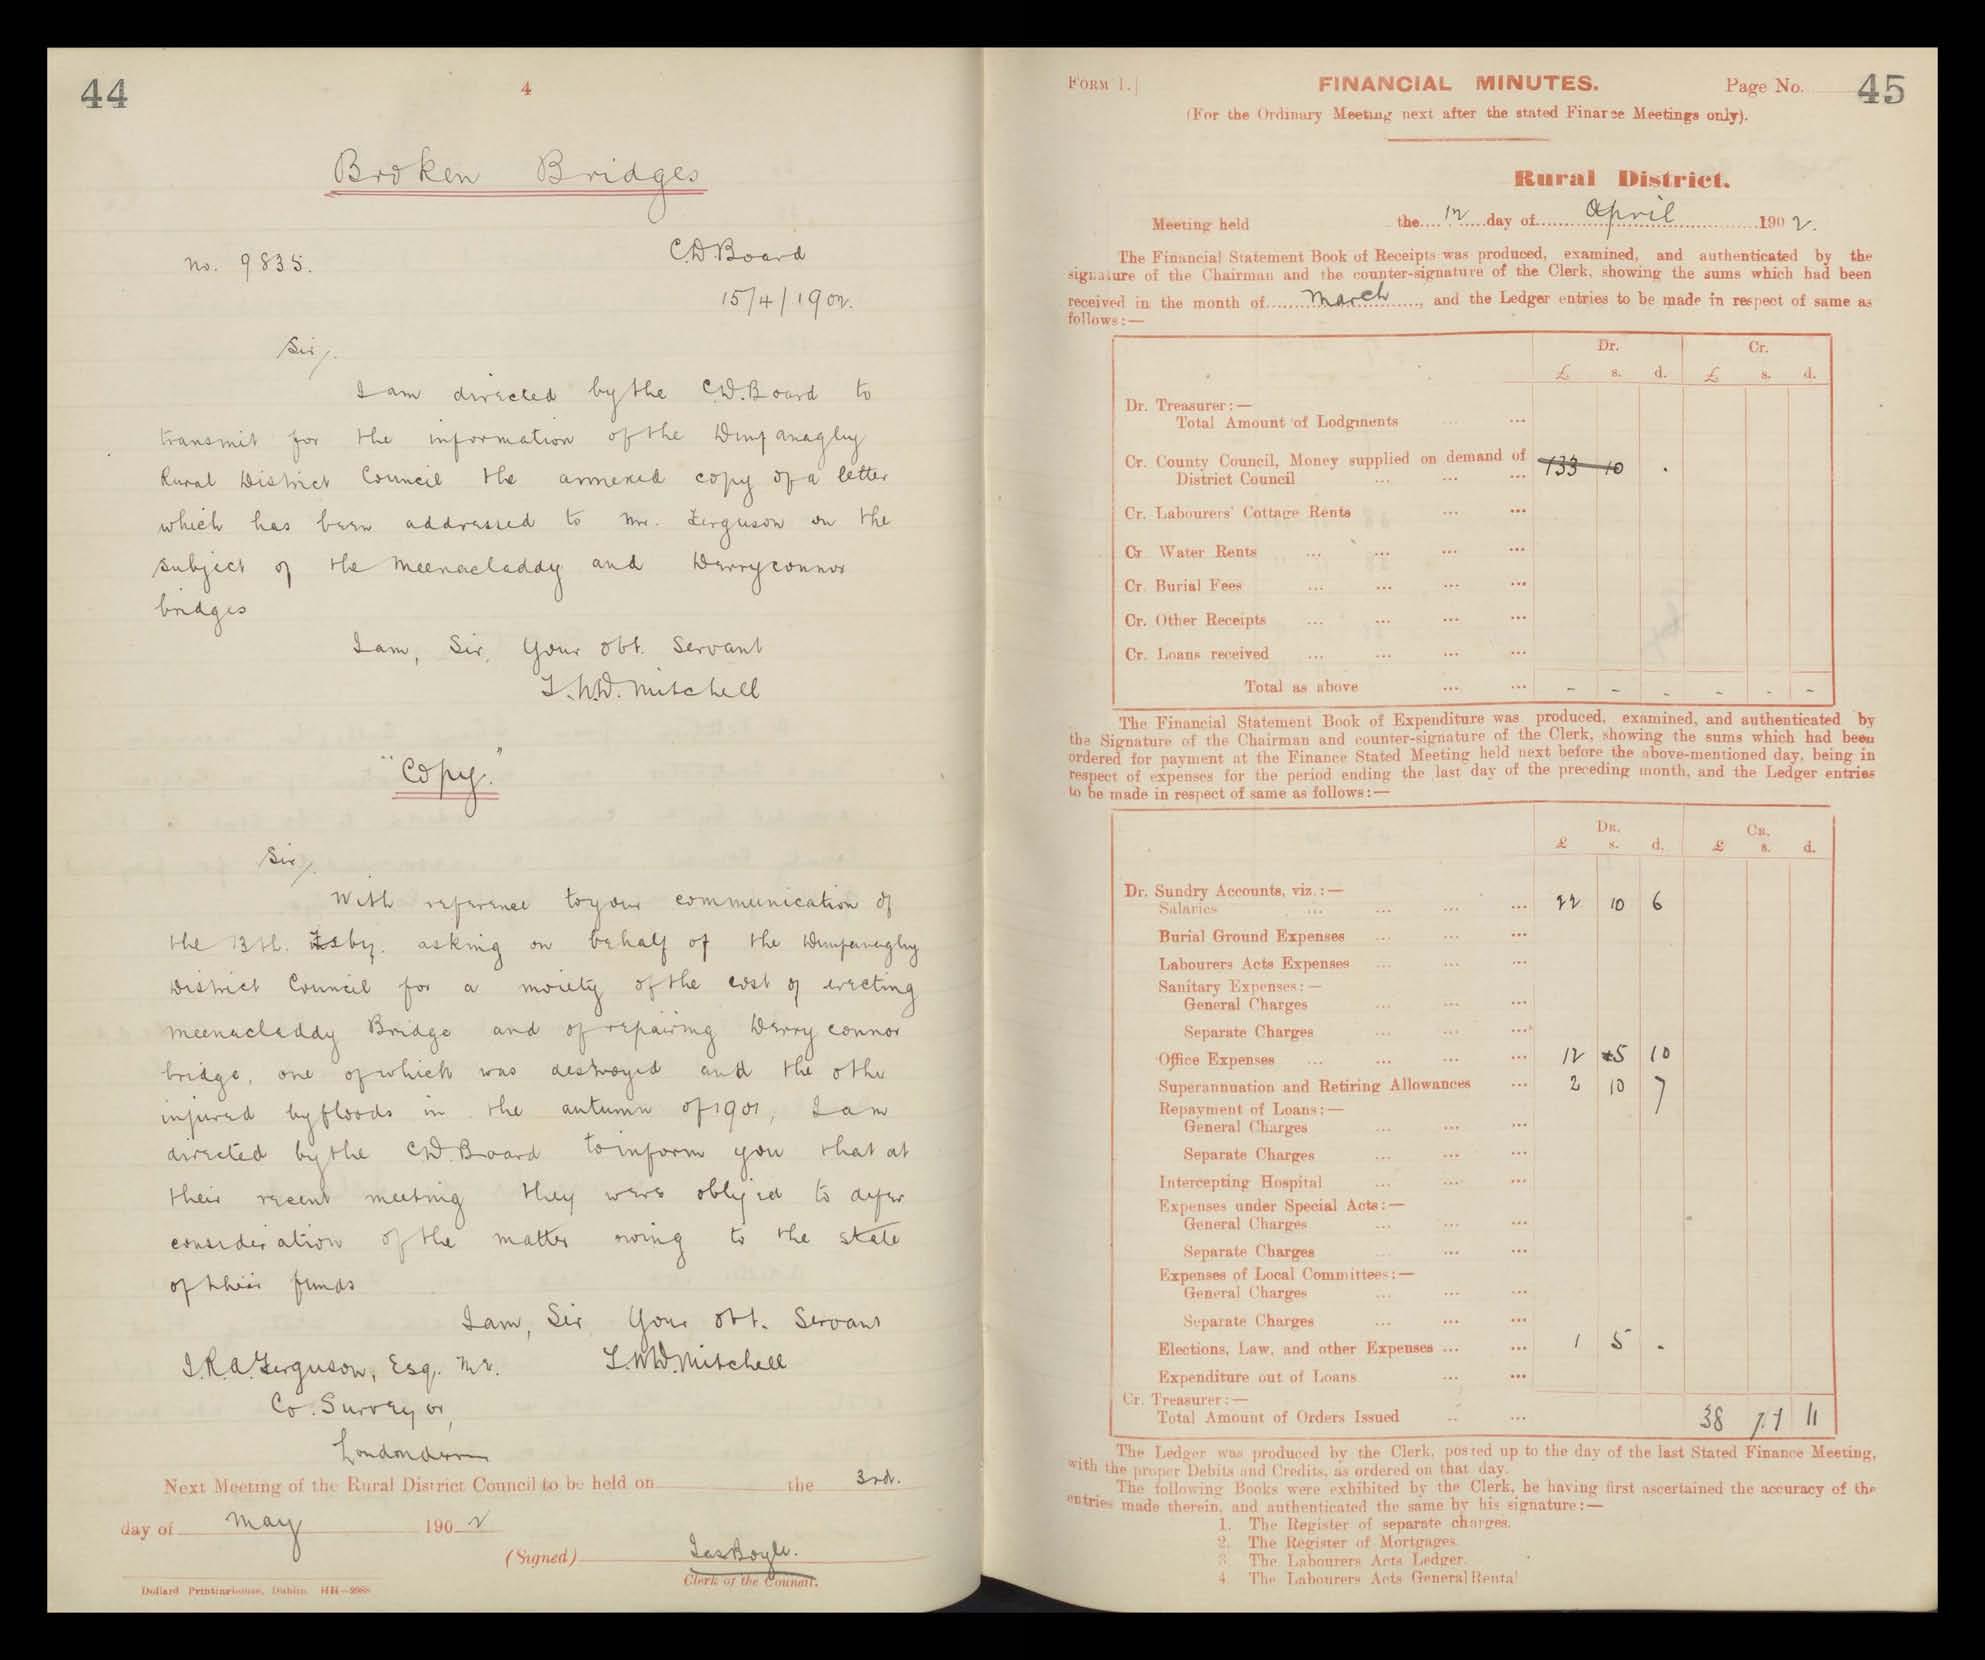 44
4
Broken Bridges
No. 9835.
C.D. Board
15/4/1902.
Sir/.
I am directed by the C.D. Board to
transmit for the information of the Dunfanaghy
Rural District Council the annexed copy of a letter
which has been addressed to Mr. Ferguson on the
subject of the Meenacladdy and Derryconnor
bridges
I am, Sir, Your obt. Servant
Mitchell
"Copy."
Sir/.
With reference to your communication of
the 13th. Feby. asking on behalf of the Dunfanaghy
District Council for a moiety of the cost of erecting
Meenacladdy Bridge and of repairing Derryconnor
bridge, one of which was destroyed and the other
injured by floods in the autumn of 1901, I am
directed by the C.D. Board to inform you that at
their recent meeting they were obliged to defer
consideration of the matter owing to the state
of their funds
I am, Sir Your obt. Servant
J.R.A. Ferguson, Esq. Mitchell
Co. Surveyor,
Londonderry
Next Meeting of the Rural District Council to be held on the 3rd.
day of May 1902
(Signed) Jas Boyle.
Clerk of the Council.
Dollard Printinghouse, Dublin.
FORM 1.]
FINANCIAL MINUTES.
Page No. 45
(For the Ordinary Meeting next after the stated Finance Meetings only).
Rural District.
Meeting held the 12 day of April 1902.
The Financial Statement Book of Receipts was produced, examined, and authenticated by the
signature of the Chairman and the counter-signature of the Clerk, showing the sums which had been
received in the month of March, and the Ledger entries to be made in respect of same as
follows:—
Dr. Cr.
£ s. d. £ s. d.
Dr. Treasurer:—
Total Amount of Lodgments ... ...
Cr. County Council, Money supplied on demand of
District Council ... ... ... 133 10 .
Cr. Labourers' Cottage Rents ... ...
Cr. Water Rents ... ... ... ...
Cr. Burial Fees ... ... ... ...
Cr. Other Receipts ... ... ... ...
Cr. Loans received ... ... ... ...
Total as above ... ... - - - - - -
The Financial Statement Book of Expenditure was produced, examined, and authenticated by
the Signature of the Chairman and counter-signature of the Clerk, showing the sums which had been
ordered for payment at the Finance Stated Meeting held next before the above-mentioned day, being in
respect of expenses for the period ending the last day of the preceding month, and the Ledger entries
to be made in respect of same as follows:—
DR. CR.
£ s. d. £ s. d.
Dr. Sundry Accounts, viz.:—
Salaries ... ... ... ... 22 10 6
Burial Ground Expenses ... ... ...
Labourers Acts Expenses ... ... ...
Sanitary Expenses:—
General Charges ... ... ...
Separate Charges ... ... ...
Office Expenses ... ... ... ... 12 5 10
Superannuation and Retiring Allowances ... 2 10 7
Repayment of Loans:—
General Charges ... ... ...
Separate Charges ... ... ...
Intercepting Hospital ... ... ...
Expenses under Special Acts:—
General Charges ... ... ...
Separate Charges ... ... ...
Expenses of Local Committees:—
General Charges ... ... ...
Separate Charges ... ... ...
Elections, Law, and other Expenses ... ... 1 5 -
Expenditure out of Loans ... ...
Cr. Treasurer:—
Total Amount of Orders Issued ... ... 38 11
The Ledger was produced by the Clerk, posted up to the day of the last Stated Finance Meeting,
with the proper Debits and Credits, as ordered on that day.
The following Books were exhibited by the Clerk, he having first ascertained the accuracy of the
entries made therein, and authenticated the same by his signature:—
1. The Register of separate charges.
2. The Register of Mortgages.
3. The Labourers Acts Ledger.
4. The Labourers Acts General Rental